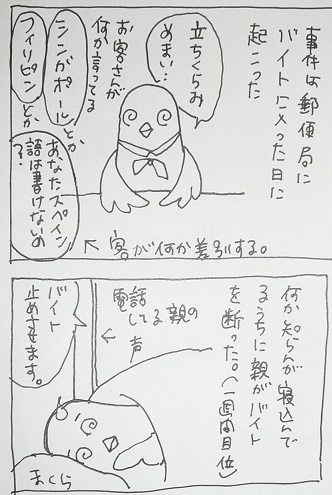 事件は郵便局に
バイトに入った日に
起こった
立ちくらみ
めまい…
お客さんが
何か言ってる
シンガポールとか
フィリピンとか
あなたスペイン
語は書けないの
?
←客が何か差別する。
何か知らんが寝込んで
るうちに親がバイト
を断った。(一週間目位)
←電話
してる親の
声
バイト
止めさせます。
まくら